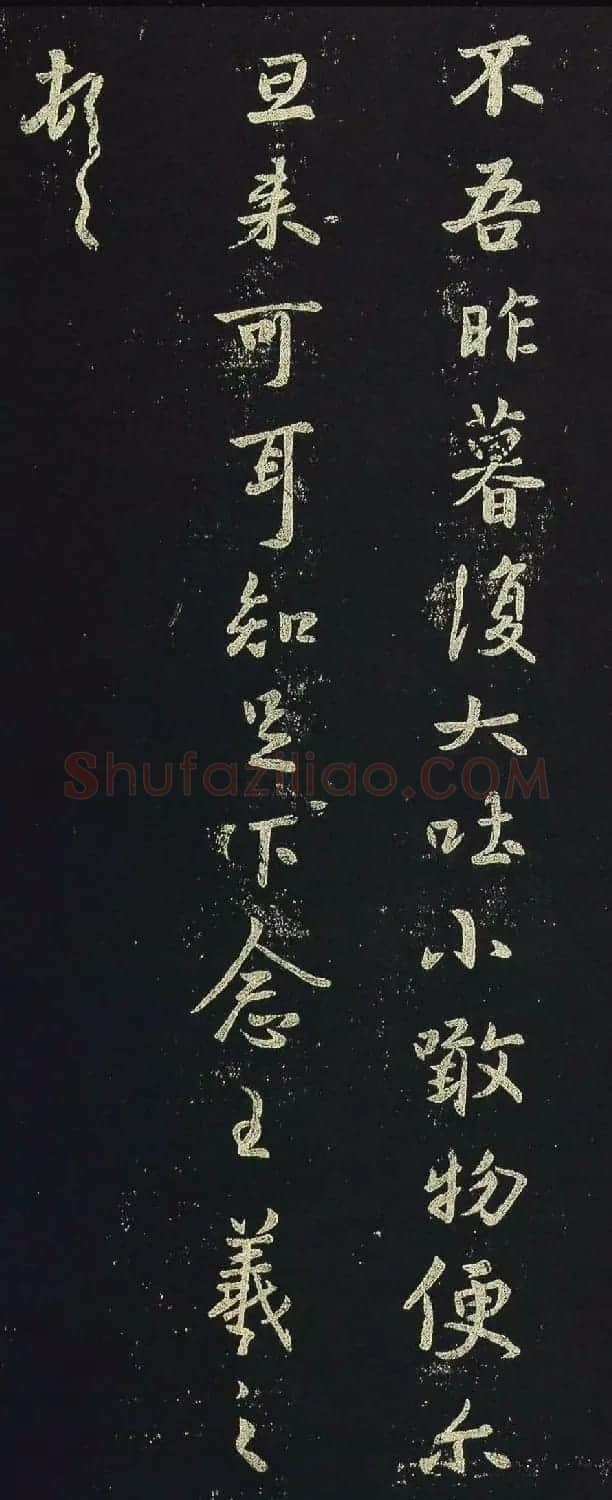 不吾昨暮復大吐小噉物便尔
旦来可耳知足下念王羲之
頓
Shufaziliao.COM